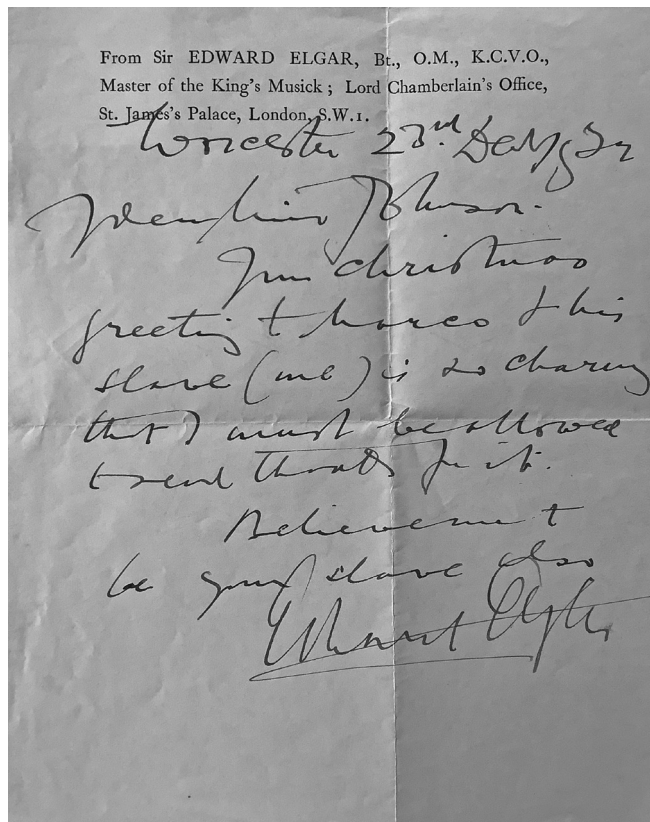 From Sir EDWARD ELGAR, Bt., O.M., K.C.V.O.,
Master of the King's Musick ; Lord Chamberlain's Office,
St. James's Palace, London, S.W.1.
Worcester 23rd Dec
Dear Miss Johnson.
Your christmas
greeting to Marco & his
slave (me) is so charming
that I must be allowed
to send thanks for it.
Believe me to
be your slave also
Edward Elgar